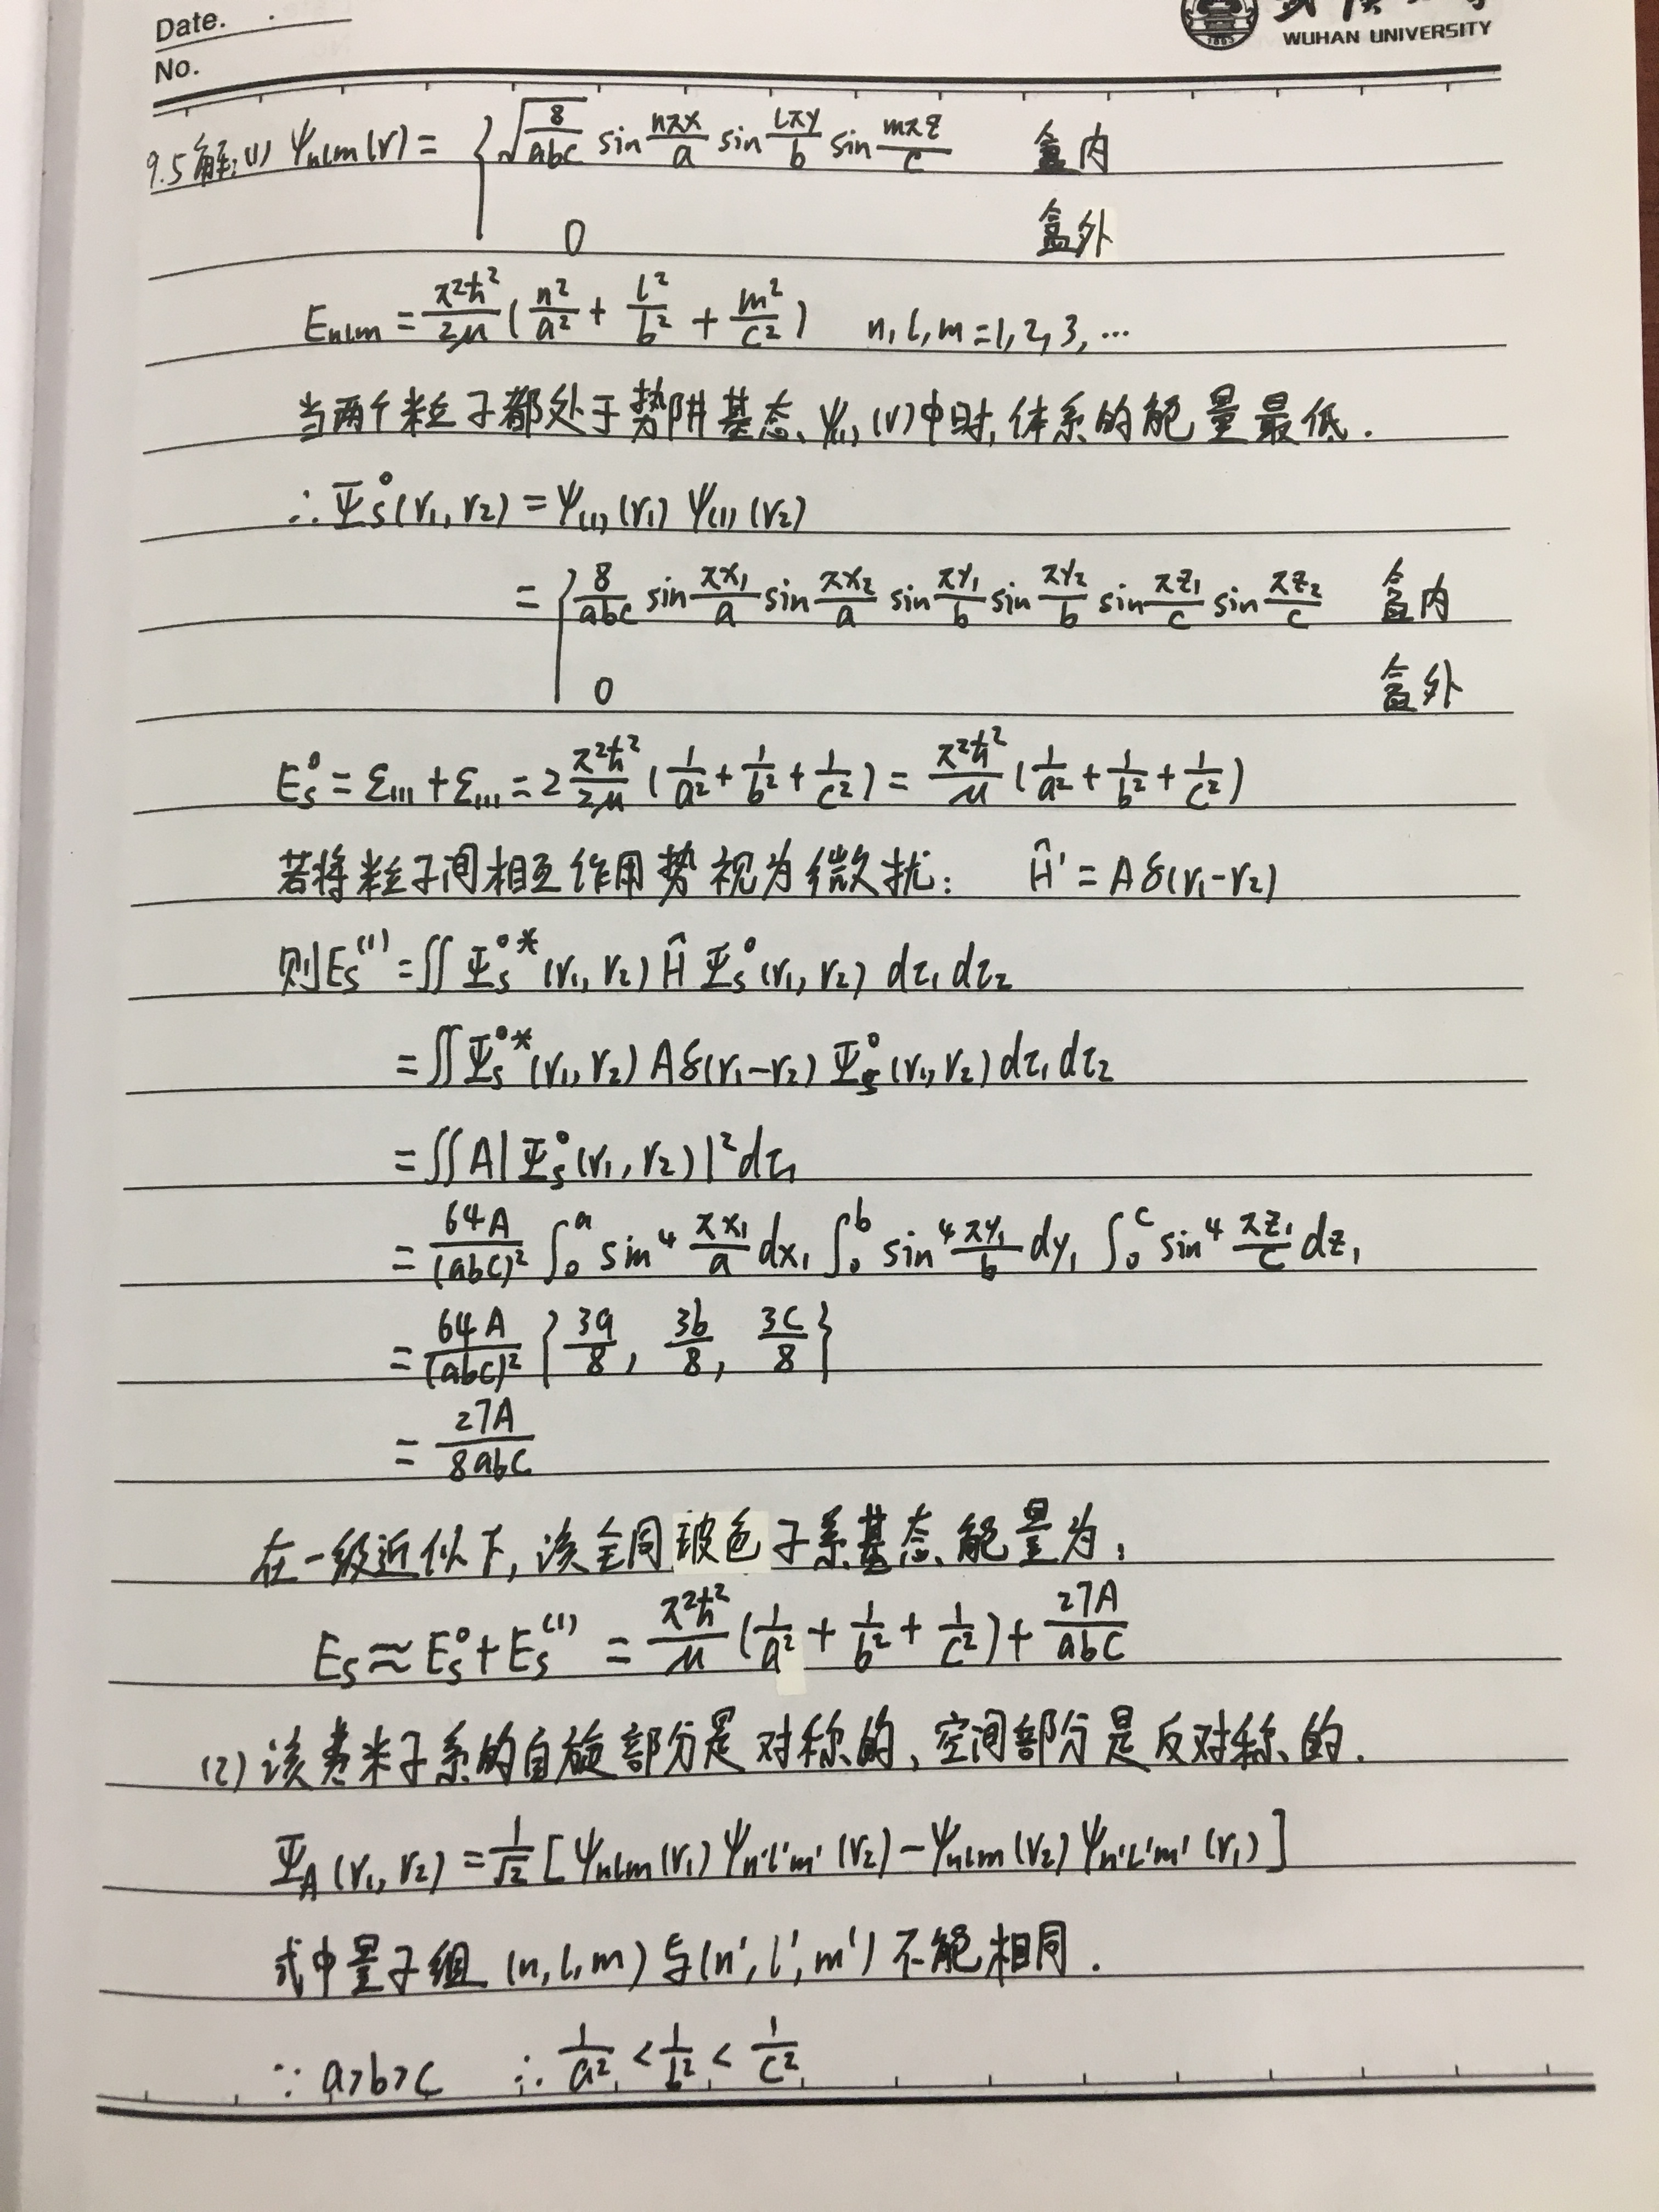 Date.
No.
WUHAN UNIVERSITY
9.5 解:(1) ψnlm(r) = { √(8/abc) sin nπx/a sin lπy/b sin mπz/c 盒内
0 盒外
Enlm = π²ħ²/2μ (n²/a² + l²/b² + m²/c²) n, l, m = 1, 2, 3, …
当两个粒子都处于势阱基态 ψ111(r)中时, 体系的能量最低.
∴ Ψs⁰(r1, r2) = ψ111(r1) ψ111(r2)
= { 8/abc sin πx1/a sin πx2/a sin πy1/b sin πy2/b sin πz1/c sin πz2/c 盒内
0 盒外
Es⁰ = ε111 + ε111 = 2 π²ħ²/2μ (1/a² + 1/b² + 1/c²) = π²ħ²/μ (1/a² + 1/b² + 1/c²)
若将粒子间相互作用势视为微扰: Ĥ' = Aδ(r1-r2)
则Es⁽¹⁾ = ∬ Ψs⁰*(r1, r2) Ĥ Ψs⁰(r1, r2) dτ1 dτ2
= ∬ Ψs⁰*(r1, r2) Aδ(r1-r2) Ψs⁰(r1, r2) dτ1 dτ2
= ∬ A|Ψs⁰(r1, r2)|² dτ1
= 64A/(abc)² ∫₀ᵃ sin⁴ πx1/a dx1 ∫₀ᵇ sin⁴ πy1/b dy1 ∫₀ᶜ sin⁴ πz1/c dz1
= 64A/(abc)² {3a/8, 3b/8, 3c/8}
= 27A/8abc
在一级近似下, 该全同玻色子系基态能量为:
Es ≈ Es⁰ + Es⁽¹⁾ = π²ħ²/μ (1/a² + 1/b² + 1/c²) + 27A/abc
(2) 该费米子系的自旋部分是对称的, 空间部分是反对称的.
ΨA(r1, r2) = 1/√2 [ψnlm(r1) ψn'l'm'(r2) - ψnlm(r2) ψn'l'm'(r1)]
式中量子组 (n, l, m) 与(n', l', m') 不能相同.
∵ a>b>c ∴ 1/a² < 1/b² < 1/c²